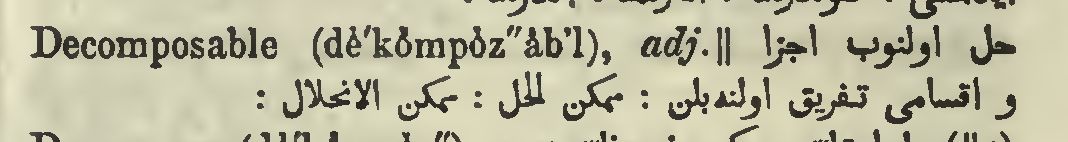 Decomposable (dė′kȯmpȯz″ȧb’l), adj. || حل اولنوب اجزا
و اقسامی تفریق اولنەبلن : ممکن الحل : ممکن الانحلال :